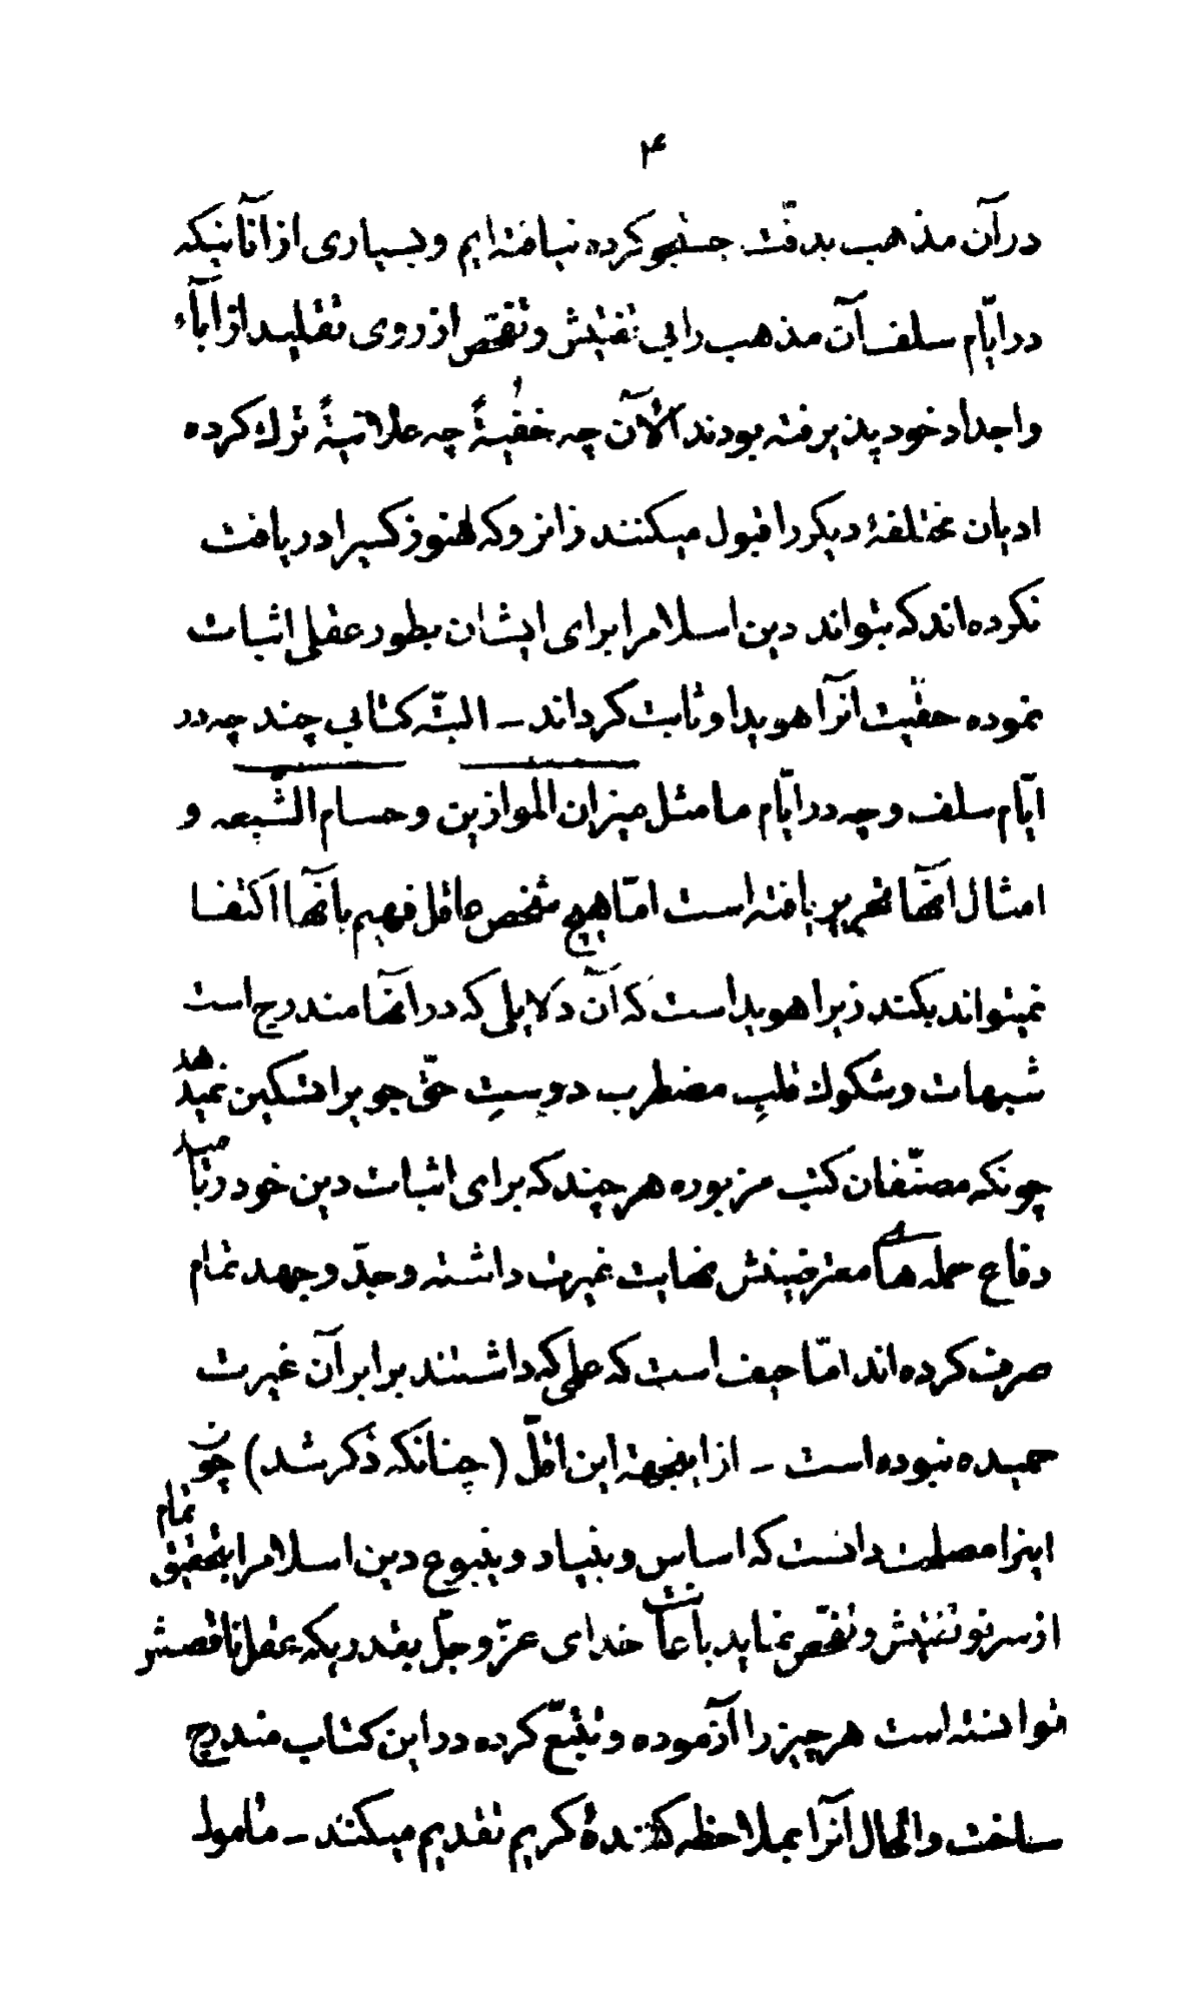 ۴
درآن مذهب بدقّت جستجو کرده نیافته‌ایم و بسیاری از آنانیکه
در ایّام سلف آن مذهب را بی تفتیش و تفحّص از روی تقلید از آباء
و اجداد خود پذیرفته بودند الآن چه خفیةً چه علانیةً ترك کرده
ادیان مختلفهٔ دیگر را قبول میکنند زانرو که هنوز کسیرا دریافت
نکرده‌اند که بتواند دین اسلام را برای ایشان بطور عقلی اثبات
نموده حقیت آنرا هویدا و ثابت کرداند ـ البتّه کتابی چند چه در
ایّام سلف و چه در ایّام ما مثل میزان الموازین و حسام الشّیعه و
امثال آنها تحریر یافته است امّا هیچ شخص عاقل فهیم بآنها اکتفا
نمیتواند بکند زیرا هویدا است که آن دلایلی که در آنها مندرج است
شبهات و شکوك قلبِ مضطرب دوستِ حقّ جو یرا تسکین نمیدهد
چونکه مصنّفان کتب مزبوره هر چند که برای اثبات دین خود و تا میدِ
دفاع حمله های معترضینش نهایت غیرت داشته و جدّ و جهد تمام
صرف کرده‌اند امّا حیف است که علمی که داشتند برابر آن غیرت
حمیده نبوده است ـ از اینجهة این اقلّ (چنانکه ذکر شد) چون
اینرا مصلحت دانست که اساس و بنیاد و ینبوع دین اسلام را بتحقیق تمام
از سرنو تفتیش و تفحّص نماید باعانت خدای عزّ و جلّ بقدریکه عقل ناقصش
توانسته است هر چیز را آزموده و تتبّع کرده در این کتاب مندرج
ساخت و الحال آنرا بملاحظه کنندهٔ کریم تقدیم میکند ـ مأمول